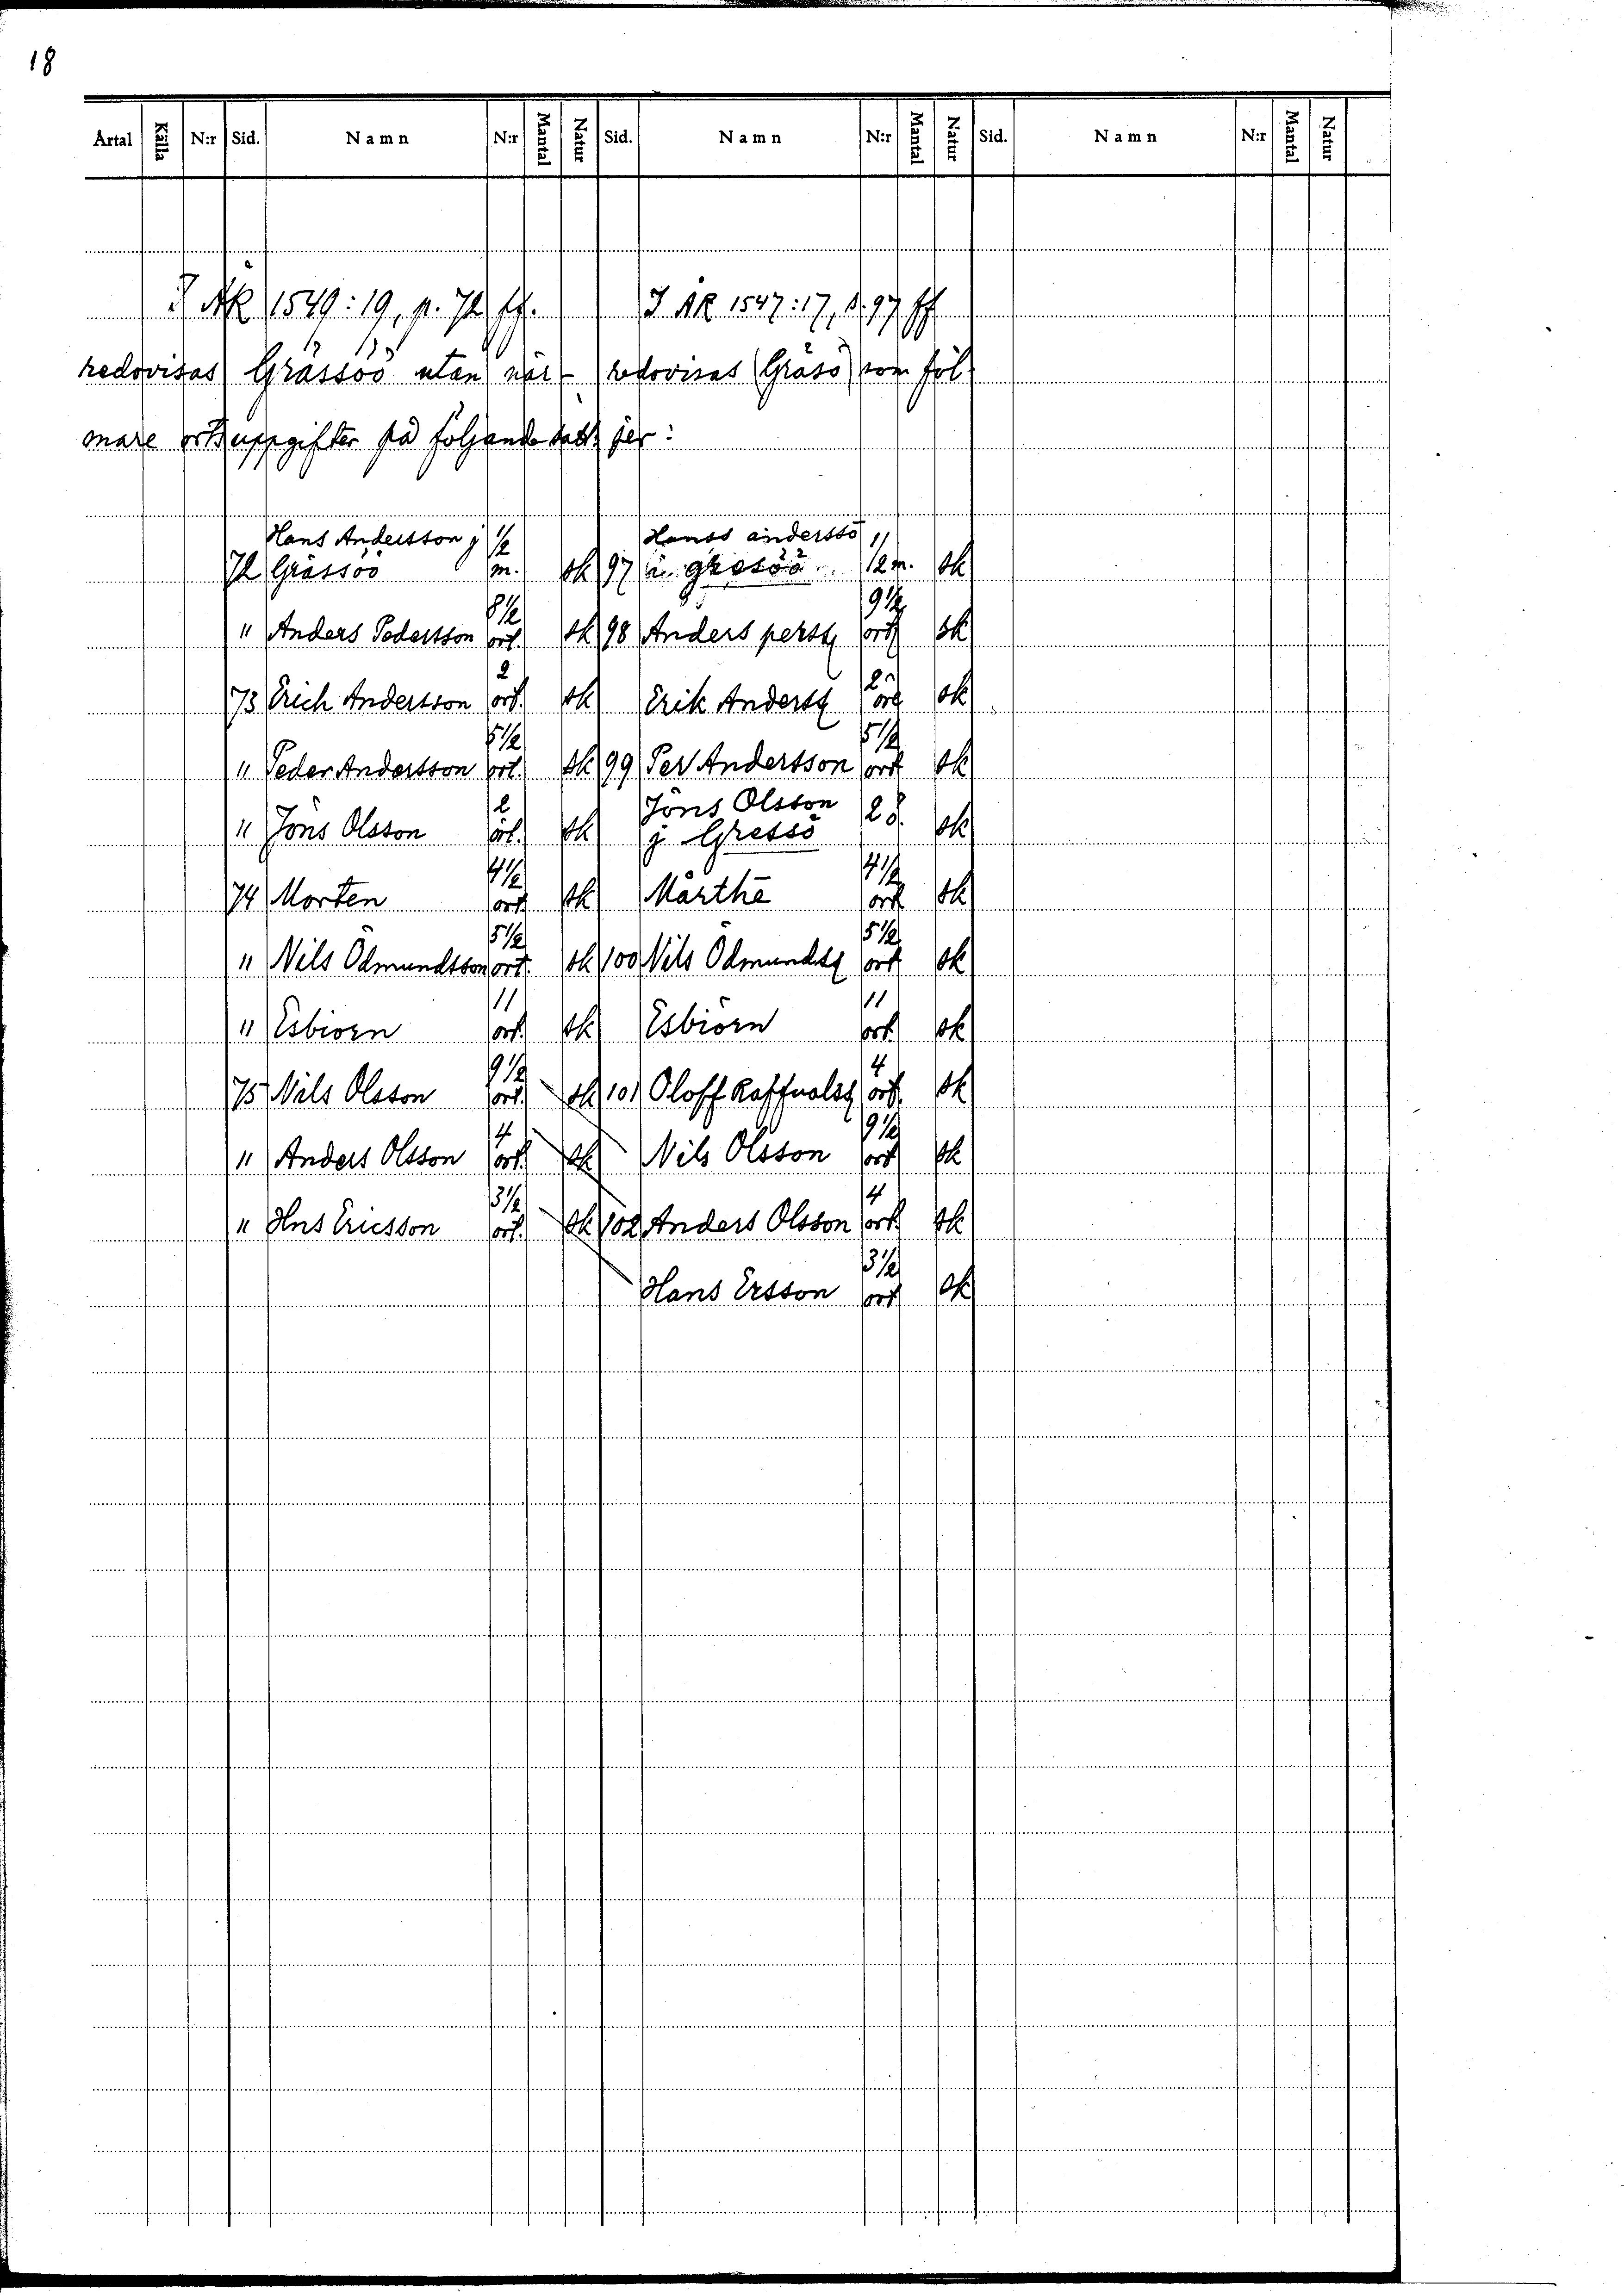 18
Årtal Källa N:r Sid. Namn N:r Mantal Natur Sid. Namn N:r Mantal Natur Sid. Namn N:r Mantal Natur
I ÅR 1549:19, p. 72 ff. I ÅR 1547:17, p. 97 ff
redovisas Grässöö utan när- redovisas (Gräsö) som föl-
mare ortsuppgifter på följande sätt: jer:
Hans Andersson j 1/2 Hanss anderssō 1/
72 Grässöö m. sk 97 gresöö 1/2 m. sk
8 1/2 9 1/2
" Anders Pedersson ört. sk 98 Anders perss ört sk
2 2
73 Erich Andersson ört. sk Erik Anderss öre sk
5 1/2 5 1/2
" Peder Andersson ört. sk 99 Per Andersson ört sk
2 Jöns Olsson
" Jöns Olsson öl. sk j Gressö 2 ö. sk
4 1/2 4 1/2
74 Morten ört sk Mårthē ört sk
5 1/2 5 1/2
" Nils Ödmundsson ört. sk 100 Nils Ödmundss ört sk
11 11
" Esbiorn ört. sk Esbiörn ört. sk
9 1/2 4
75 Nils Olsson ört. sk 101 Oloff Raffualss ört. sk
4 9 1/2
" Anders Olsson ört. sk Nils Olsson ört sk
3 1/2 4
" Hns Ericsson ört. sk 102 Anders Olsson ört. sk
3 1/2
Hans Ersson ört sk